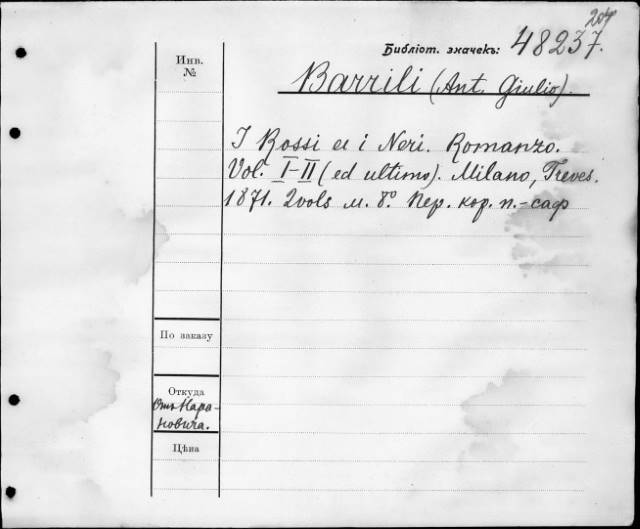 Библіот. значекъ: 48237.
Инв.
№
Barrili (Ant. Giulio).
I Rossi e i Neri. Romanzo.
Vol. I-II (ed ultimo). Milano, Treves.
1871. 2vols м. 8º Пер. кор. п.-саф
По заказу
Откуда
Отъ Кара-
новича.
Цѣна